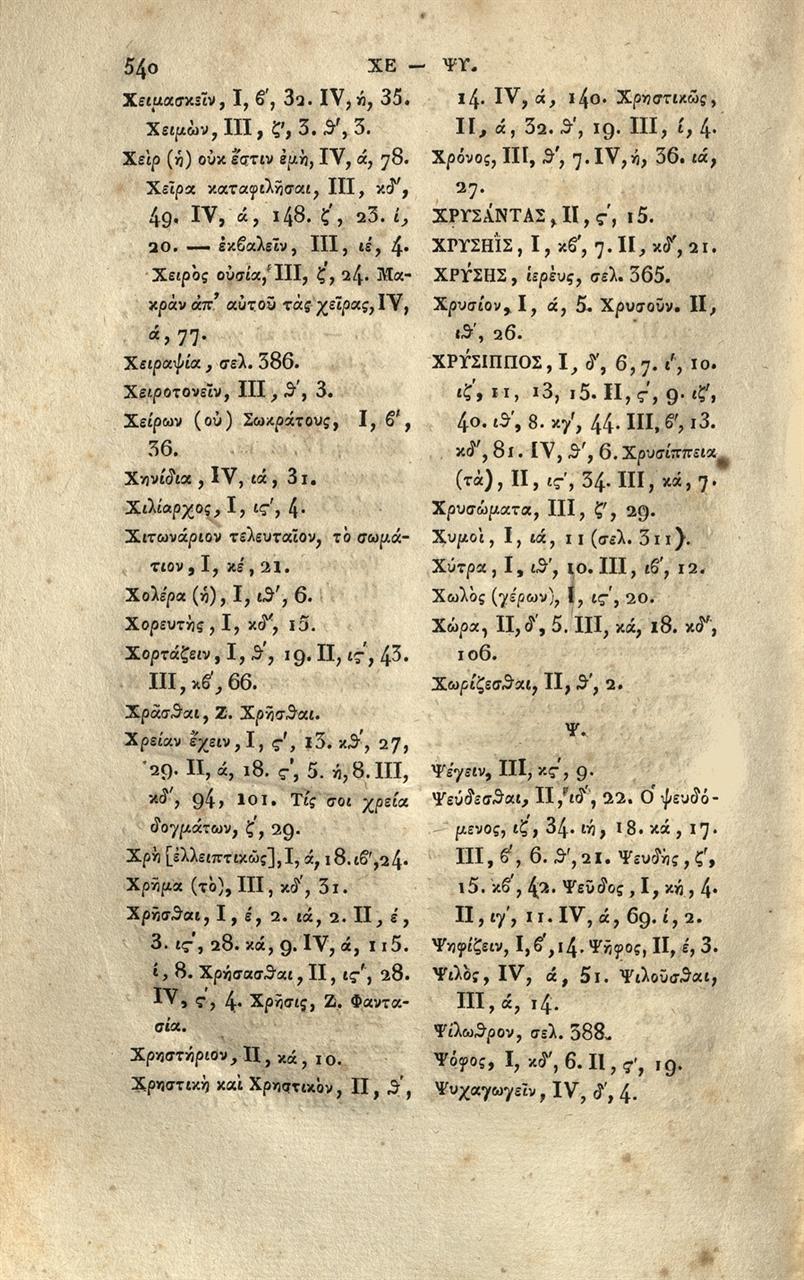 540
ΧΕ — ΨΥ.
Χειμασκεῖν, I, ϐ', 32. IV, ή, 35.
Χειμὼν, III, ζ', 3. ϑ', 3.
Χεὶρ (ἡ) οὐκ ἔστιν ἐμὴ, IV, ά, 78.
Χεῖρα καταφιλῆσαι, III, κδ',
49. IV, ά, 148. ζ', 23. ί,
20. — ἐκϐαλεῖν, III, ιέ, 4.
Χειρὸς οὐσία, III, ζ', 24. Μα-
κρὰν ἀπ' αὐτοῦ τὰς χεῖρας, IV,
ά, 77.
Χειραψία, σελ. 386.
Χειροτονεῖν, III, ϑ', 3.
Χείρων (οὐ) Σωκράτους, I, ϐ',
36.
Χηνίδια, IV, ιά, 31.
Χιλίαρχος, I, ις', 4.
Χιτωνάριον τελευταῖον, τὸ σωμά-
τιον, I, κέ, 21.
Χολέρα (ἡ), I, ιϑ', 6.
Χορευτὴς, I, κδ', 15.
Χορτάζειν, I, ϑ', 19. II, ις', 43.
III, κϐ', 66.
Χρᾶσϑαι, Ζ. Χρῆσϑαι.
Χρείαν ἔχειν, I, ς', 13. κϑ', 27,
29. II, ά, 18. ς', 5. ή, 8. III,
κδ', 94, 101. Τίς σοι χρεία
δογμάτων, ζ', 29.
Χρὴ [ἐλλειπτικῶς], I, ά, 18. ιϐ', 24.
Χρῆμα (τὸ), III, κδ', 31.
Χρῆσϑαι, I, έ, 2. ιά, 2. II, έ,
3. ις', 28. κά, 9. IV, ά, 115.
ί, 8. Χρήσασϑαι, II, ις', 28.
IV, ς', 4. Χρῆσις, Ζ. Φαντα-
σία.
Χρηστήριον, II, κά, 10.
Χρηστικὴ καὶ Χρηστικὸν, II, ϑ',
14. IV, ά, 140. Χρηστικῶς,
II, ά, 32. ϑ', 19. III, ί, 4.
Χρόνος, III, ϑ', 7. IV, ή, 36. ιά,
27.
ΧΡΥΣΆΝΤΑΣ, II, ς', 15.
ΧΡΥΣΗΪΣ, I, κϐ', 7. II, κδ', 21.
ΧΡΎΣΗΣ, ἱερέυς, σελ. 365.
Χρυσίον, I, ά, 5. Χρυσοῦν. II,
ιϑ', 26.
ΧΡΎΣΙΠΠΟΣ, I, δ', 6, 7. ί, 10.
ιζ', 11, 13, 15. II, ς', 9. ιζ',
40. ιϑ', 8. κγ', 44. III, ϐ', 13.
κδ', 81. IV, ϑ', 6. Χρυσίππεια
(τὰ), II, ις', 34. III, κά, 7.
Χρυσώματα, III, ζ', 29.
Χυμοὶ, I, ιά, 11 (σελ. 311).
Χύτρα, I, ιϑ', 10. III, ιϐ', 12.
Χωλὸς (γέρων), I, ις', 20.
Χώρα, II, δ', 5. III, κά, 18. κδ',
106.
Χωρίζεσϑαι, II, ϑ', 2.
Ψ.
Ψέγειν, III, κς', 9.
Ψεύδεσϑαι, II, ιδ', 22. Ὁ ψευδό-
μενος, ιζ', 34. ιή, 18. κά, 17.
III, ϐ', 6. ϑ', 21. Ψευδὴς, ζ',
15. κϐ', 42. Ψεῦδος, I, κή, 4.
II, ιγ', 11. IV, ά, 69. ί, 2.
Ψηφίζειν, I, ϐ', 14. Ψῆφος, II, έ, 3.
Ψιλὸς, IV, ά, 51. Ψιλοῦσϑαι,
III, ά, 14.
Ψίλωϑρον, σελ. 388.
Ψόφος, I, κδ', 6. II, ς', 19.
Ψυχαγωγεῖν, IV, δ', 4.